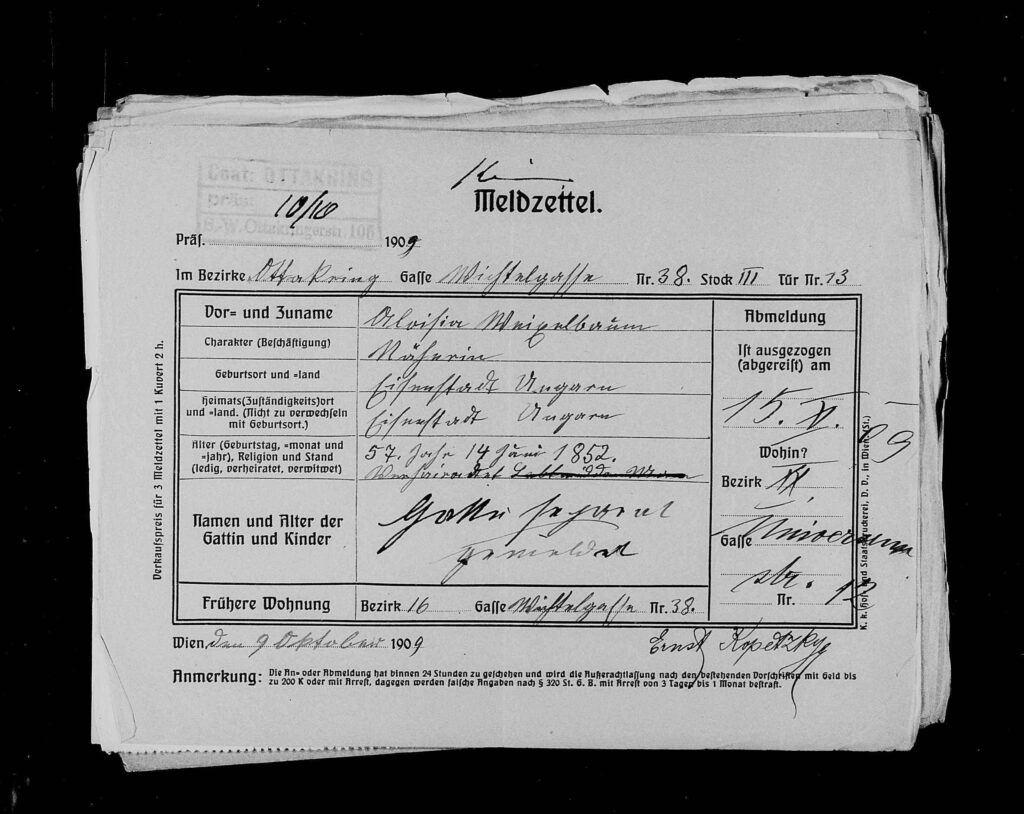 Coat: OTTAKRING
präs:
10/10
S.-W. Ottakringerstr. 106
Meldzettel.
Präs. 1909
Im Bezirke Ottakring Gasse Wichtelgasse Nr. 38. Stock III Tür Nr. 13
Vor= und Zuname Aloisia Weixelbaum
Charakter (Beschäftigung) Näherin
Geburtsort und =land Eisenstadt Ungarn
Heimats(Zuständigkeits)ort und =land. (Nicht zu verwechseln mit Geburtsort.) Eisenstadt Ungarn
Alter (Geburtstag, =monat und =jahr), Religion und Stand (ledig, verheiratet, verwitwet) 57. Jahr 14 Juni 1852.
Verheiratet
Namen und Alter der Gattin und Kinder Gatte separat
gemeldet
Frühere Wohnung Bezirk 16 Gasse Wichtelgasse Nr. 38.
Abmeldung
Ist ausgezogen
(abgereist) am
15. XI. 09
Wohin?
Bezirk IX.
Gasse
str.
Nr. 12
Wien, den 9 Oktober 1909
Ernst Kopetzky
Anmerkung: Die An= oder Abmeldung hat binnen 24 Stunden zu geschehen und wird die Außerachtlassung nach den bestehenden Vorschriften mit Geld bis
zu 200 K oder mit Arrest, dagegen werden falsche Angaben nach § 320 St. G. B. mit Arrest von 3 Tagen bis 1 Monat bestraft.
Verkaufspreis für 3 Meldzettel mit 1 Kuvert 2 h.
K. k. Hof= und Staatsdruckerei, D. D., in Wien (St.)